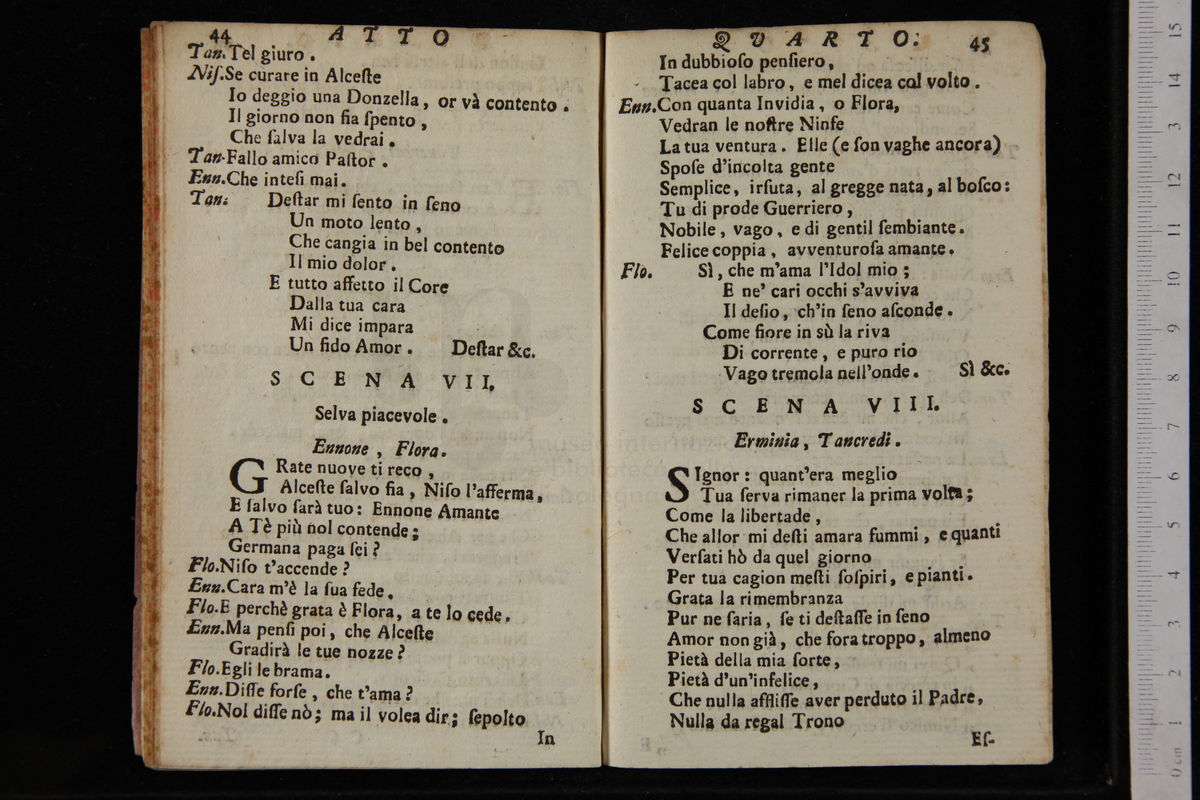 44 ATTO
Tan. Tel giuro .
Niſ. Se curare in Alceſte
Io deggio una Donzella, or và contento .
Il giorno non fia ſpento ,
Che ſalva la vedrai .
Tan. Fallo amico Paſtor .
Enn. Che inteſi mai .
Tan. Deſtar mi ſento in ſeno
Un moto lento ,
Che cangia in bel contento
Il mio dolor .
E tutto affetto il Core
Dalla tua cara
Mi dice impara
Un fido Amor . Deſtar &c.
SCENA VII.
Selva piacevole .
Ennone , Flora .
GRate nuove ti reco ,
Alceſte ſalvo fia , Niſo l'afferma ,
E ſalvo ſarà tuo : Ennone Amante
A Tè più nol contende ;
Germana paga ſei ?
Flo. Niſo t'accende ?
Enn. Cara m'è la ſua fede .
Flo. E perchè grata è Flora , a te lo cede .
Enn. Ma penſi poi , che Alceſte
Gradirà le tue nozze ?
Flo. Egli le brama .
Enn. Diſſe forſe , che t'ama ?
Flo. Nol diſſe nò ; ma il volea dir ; ſepolto
In
QUARTO. 45
In dubbioſo penſiero ,
Tacea col labro , e mel dicea col volto .
Enn. Con quanta Invidia , o Flora,
Vedran le noſtre Ninfe
La tua ventura . Elle (e ſon vaghe ancora)
Spoſe d'incolta gente
Semplice , irſuta , al gregge nata , al boſco :
Tu di prode Guerriero ,
Nobile , vago , e di gentil ſembiante .
Felice coppia , avventuroſa amante .
Flo. Sì , che m'ama l'Idol mio ;
E ne' cari occhi s'avviva
Il deſio , ch'in ſeno aſconde .
Come fiore in sù la riva
Di corrente , e puro rio
Vago tremola nell'onde . Sì &c.
SCENA VIII.
Erminia , Tancredi .
SIgnor : quant'era meglio
Tua ſerva rimaner la prima volta ;
Come la libertade ,
Che allor mi deſti amara fummi , e quanti
Verſati hò da quel giorno
Per tua cagion meſti ſoſpiri , e pianti .
Grata la rimembranza
Pur ne ſaria , ſe ti deſtaſſe in ſeno
Amor non già , che fora troppo , almeno
Pietà della mia ſorte ,
Pietà d'un'infelice ,
Che nulla affliſſe aver perduto il Padre ,
Nulla da regal Trono
Eſ-